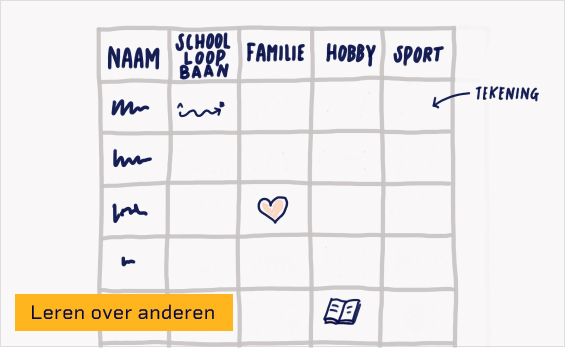 NAAM
SCHOOL
LOOP
BAAN
FAMILIE
HOBBY
SPORT
TEKENING
Leren over anderen